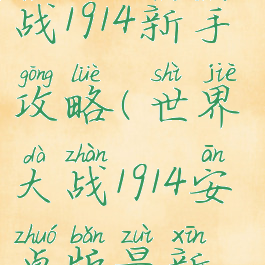 战1914新手
gōng lüè shì jiè
攻略(世界
dà zhàn ān
大战1914安
zhuó bǎn zuì xīn
卓版最新